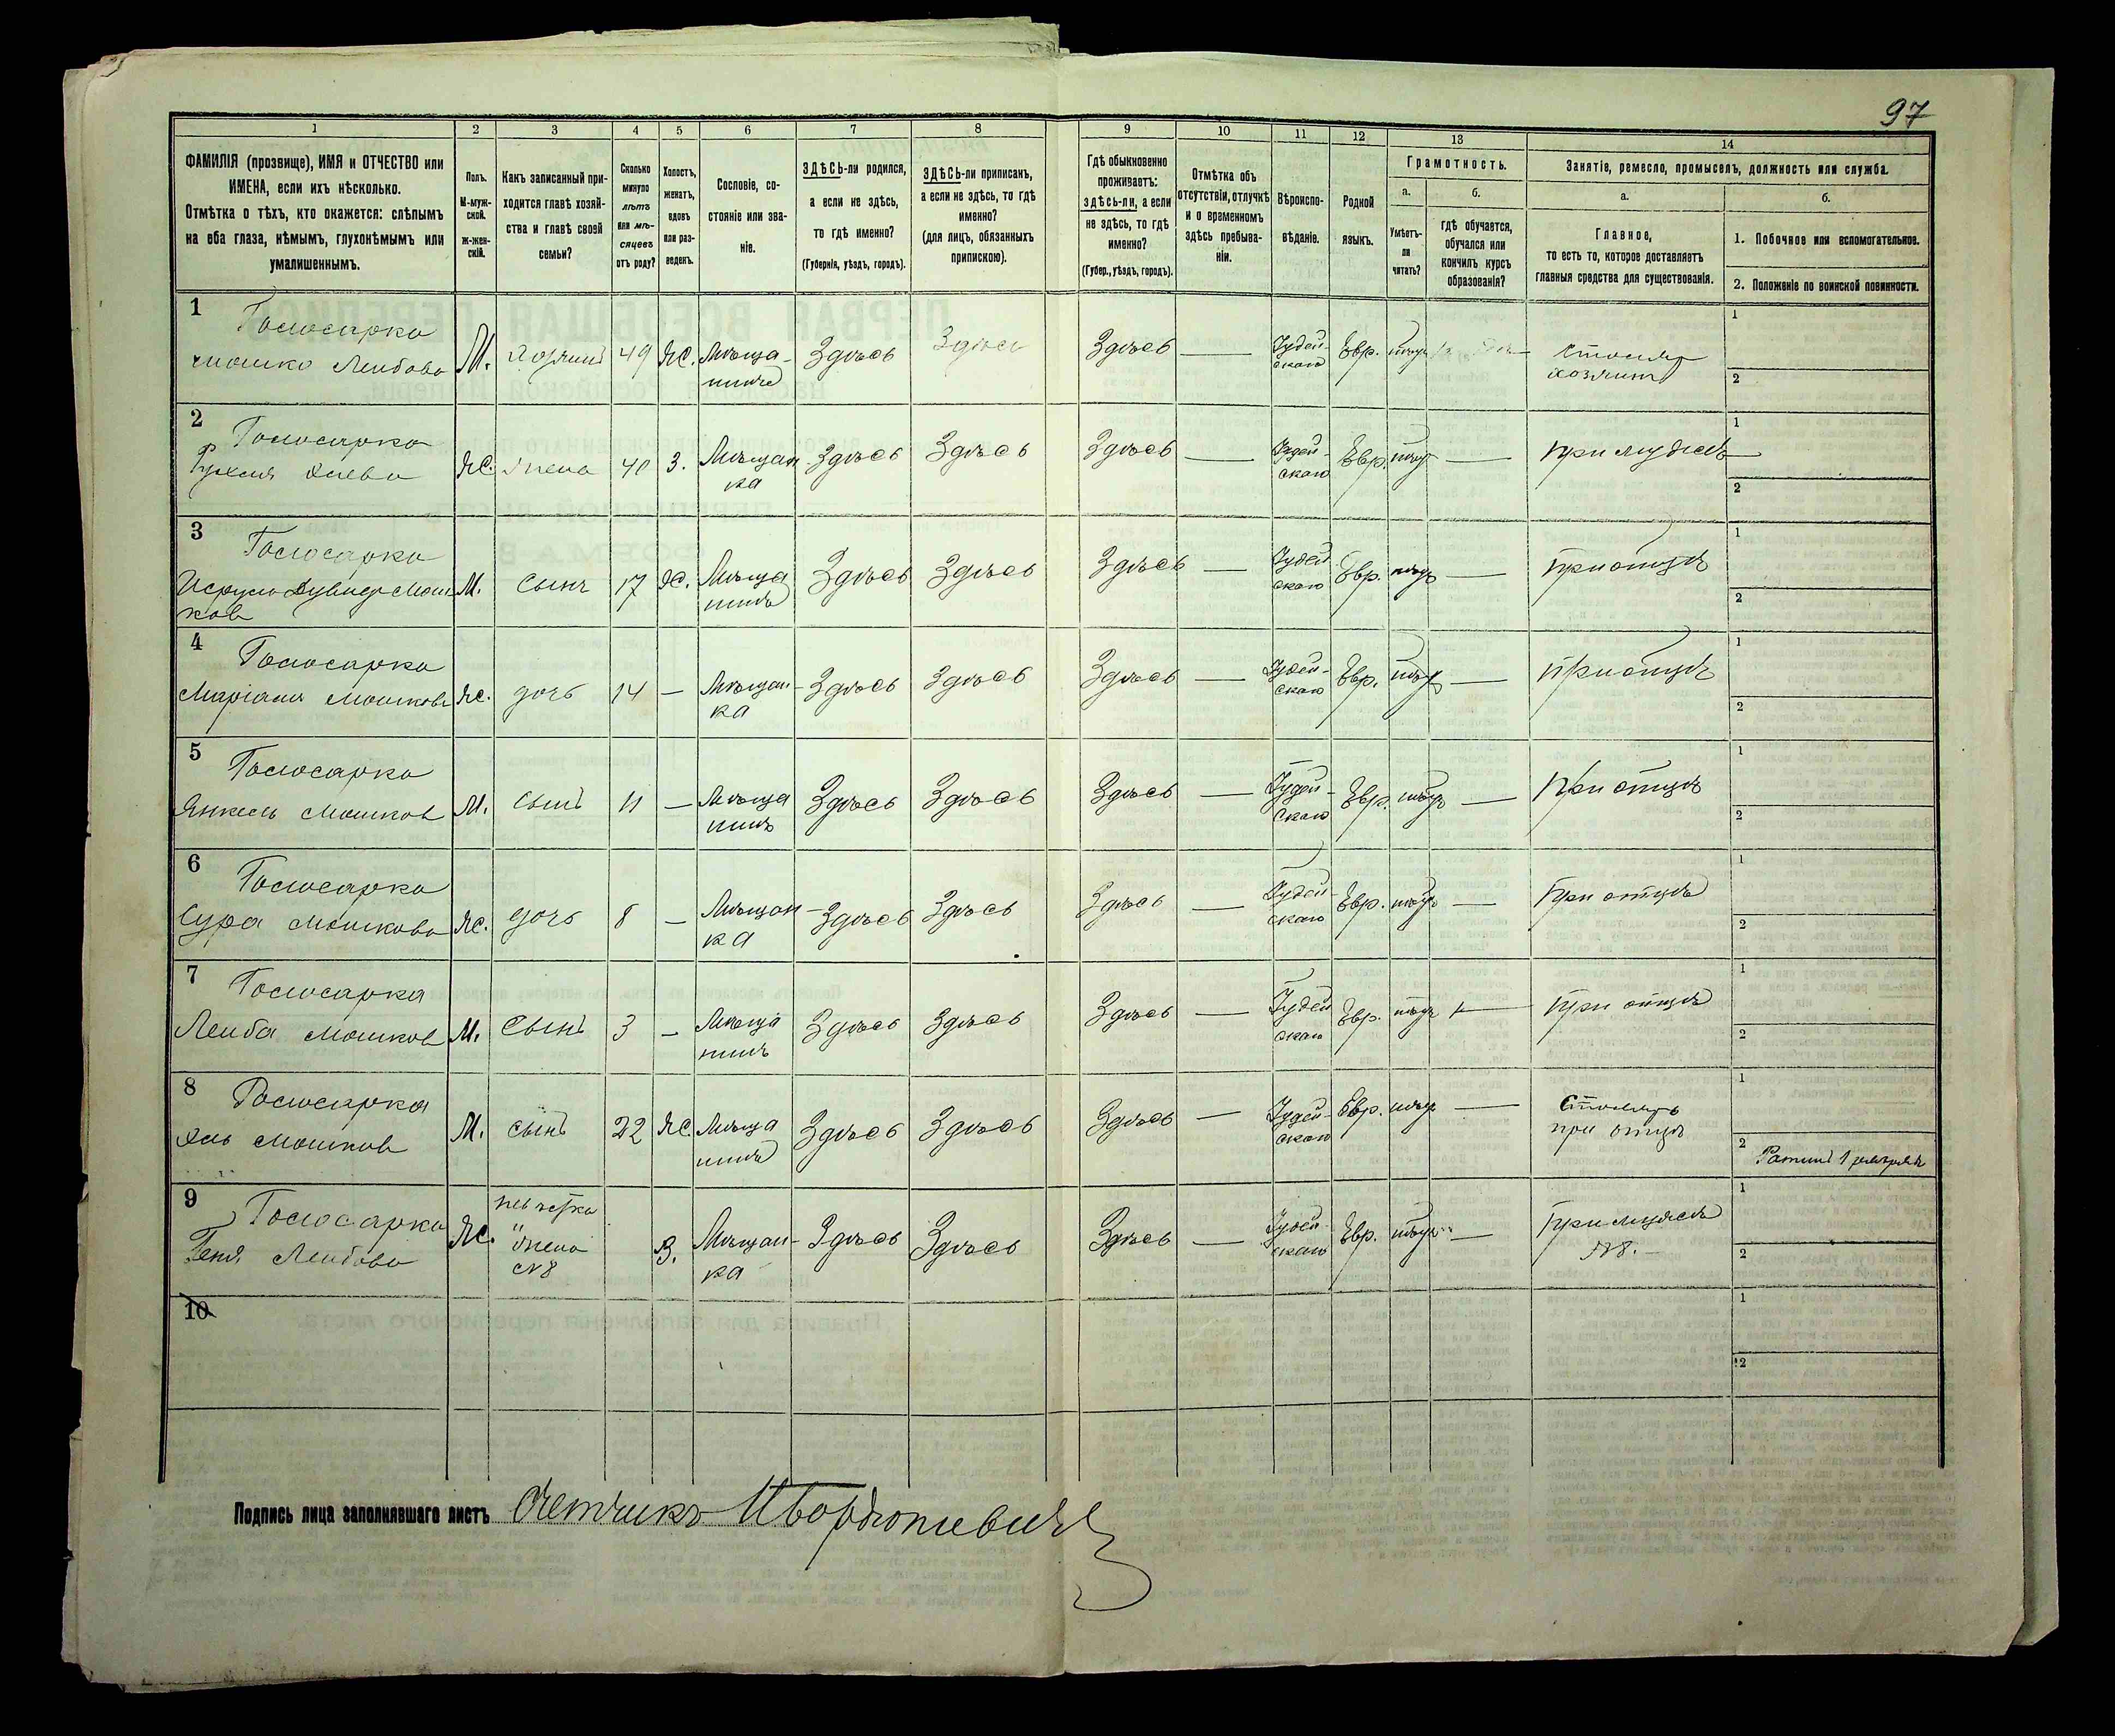 97
1 2 3 4 5 6 7 8 9 10 11 12 13 14
ФАМИЛІЯ (прозвище), ИМЯ и ОТЧЕСТВО или
ИМЕНА, если ихъ нѣсколько.
Отмѣтка о тѣхъ, кто окажется: слѣпымъ
на оба глаза, нѣмымъ, глухонѣмымъ или
умалишеннымъ.
Полъ.
М-муж-
ской.
Ж-жен-
скій.
Какъ записанный при-
ходится главѣ хозяй-
ства и главѣ своей
семьи?
Сколько
минуло
лѣтъ
или мѣ-
сяцевъ
отъ роду?
Холостъ,
женатъ,
вдовъ
или раз-
веденъ.
Сословіе, со-
стояніе или зва-
ніе.
ЗДѢСЬ-ли родился,
а если не здѣсь,
то гдѣ именно?
(Губернія, уѣздъ, городъ).
ЗДѢСЬ-ли приписанъ,
а если не здѣсь, то гдѣ
именно?
(для лицъ, обязанныхъ
припискою).
Гдѣ обыкновенно
проживаетъ:
здѣсь-ли, а если
не здѣсь, то гдѣ
именно?
(Губер., уѣздъ, городъ).
Отмѣтка объ
отсутствіи, отлучкѣ
и о временномъ
здѣсь пребыва-
ніи.
Вѣроиспо-
вѣданіе.
Родной
языкъ.
Грамотность.
а.
Умѣетъ-
ли
читать?
б.
гдѣ обучается,
обучался или
кончилъ курсъ
образованія?
Занятіе, ремесло, промыселъ, должность или служба.
а.
Главное,
то есть то, которое доставляетъ
главныя средства для существованія.
б.
1. Побочное или вспомогательное.
2. Положеніе по воинской повинности.
1
Голосарко
Мошко Лейбовъ М. Хозяинъ 49 Ж. Мѣща-
нинъ Здѣсь Здѣсь Здѣсь — Іудей-
ское Евр. Столяр
хозяинъ
1
2
2
Голосарко
Рухля Ж. Жена 40 З. Мѣщан-
ка Здѣсь Здѣсь Здѣсь — Іудей-
ское Евр. — При мужѣ
1
2
3
Голосарко
Исруль Дувидъ Мош-
ков М. Сынъ 17 Х. Мѣща
нинъ Здѣсь Здѣсь Здѣсь — Іудей
ское Евр. — При отцѣ
1
2
4
Голосарко
Маріаля Мошкова Ж. дочь 14 — Мѣщан-
ка Здѣсь Здѣсь Здѣсь — Іудей-
ское Евр. — При отцѣ
1
2
5
Голосарко
Янкель Мошков М. Сынъ 11 — Мѣща
нинъ Здѣсь Здѣсь Здѣсь — Іудей-
ское Евр. — При отцѣ
1
2
6
Голосарко
Сура Мошкова Ж. дочь 8 — Мѣщан-
ка Здѣсь Здѣсь Здѣсь — Іудей-
ское Евр. — При отцѣ
1
2
7
Голосарка
Лейба Мошков М. Сынъ 3 — Мѣща
нинъ Здѣсь Здѣсь Здѣсь — Іудей
ское Евр. — При отцѣ
1
2
8
Голосарка
Мошков М. сынъ 22 Ж. Мѣща
нинъ Здѣсь Здѣсь Здѣсь — Іудей-
ское Евр. — Столяръ
при отцѣ
1
2 Ратник 1 разряда
9
Голосарко
Геня Лейбова Ж. невѣстка
жена
№8 З. Мѣщан-
ка Здѣсь Здѣсь Здѣсь — Іудей-
ское Евр. — При мужѣ
№8. —
1
2
10
1
2
Подпись лица заполнявшаго листъ Счетчикъ